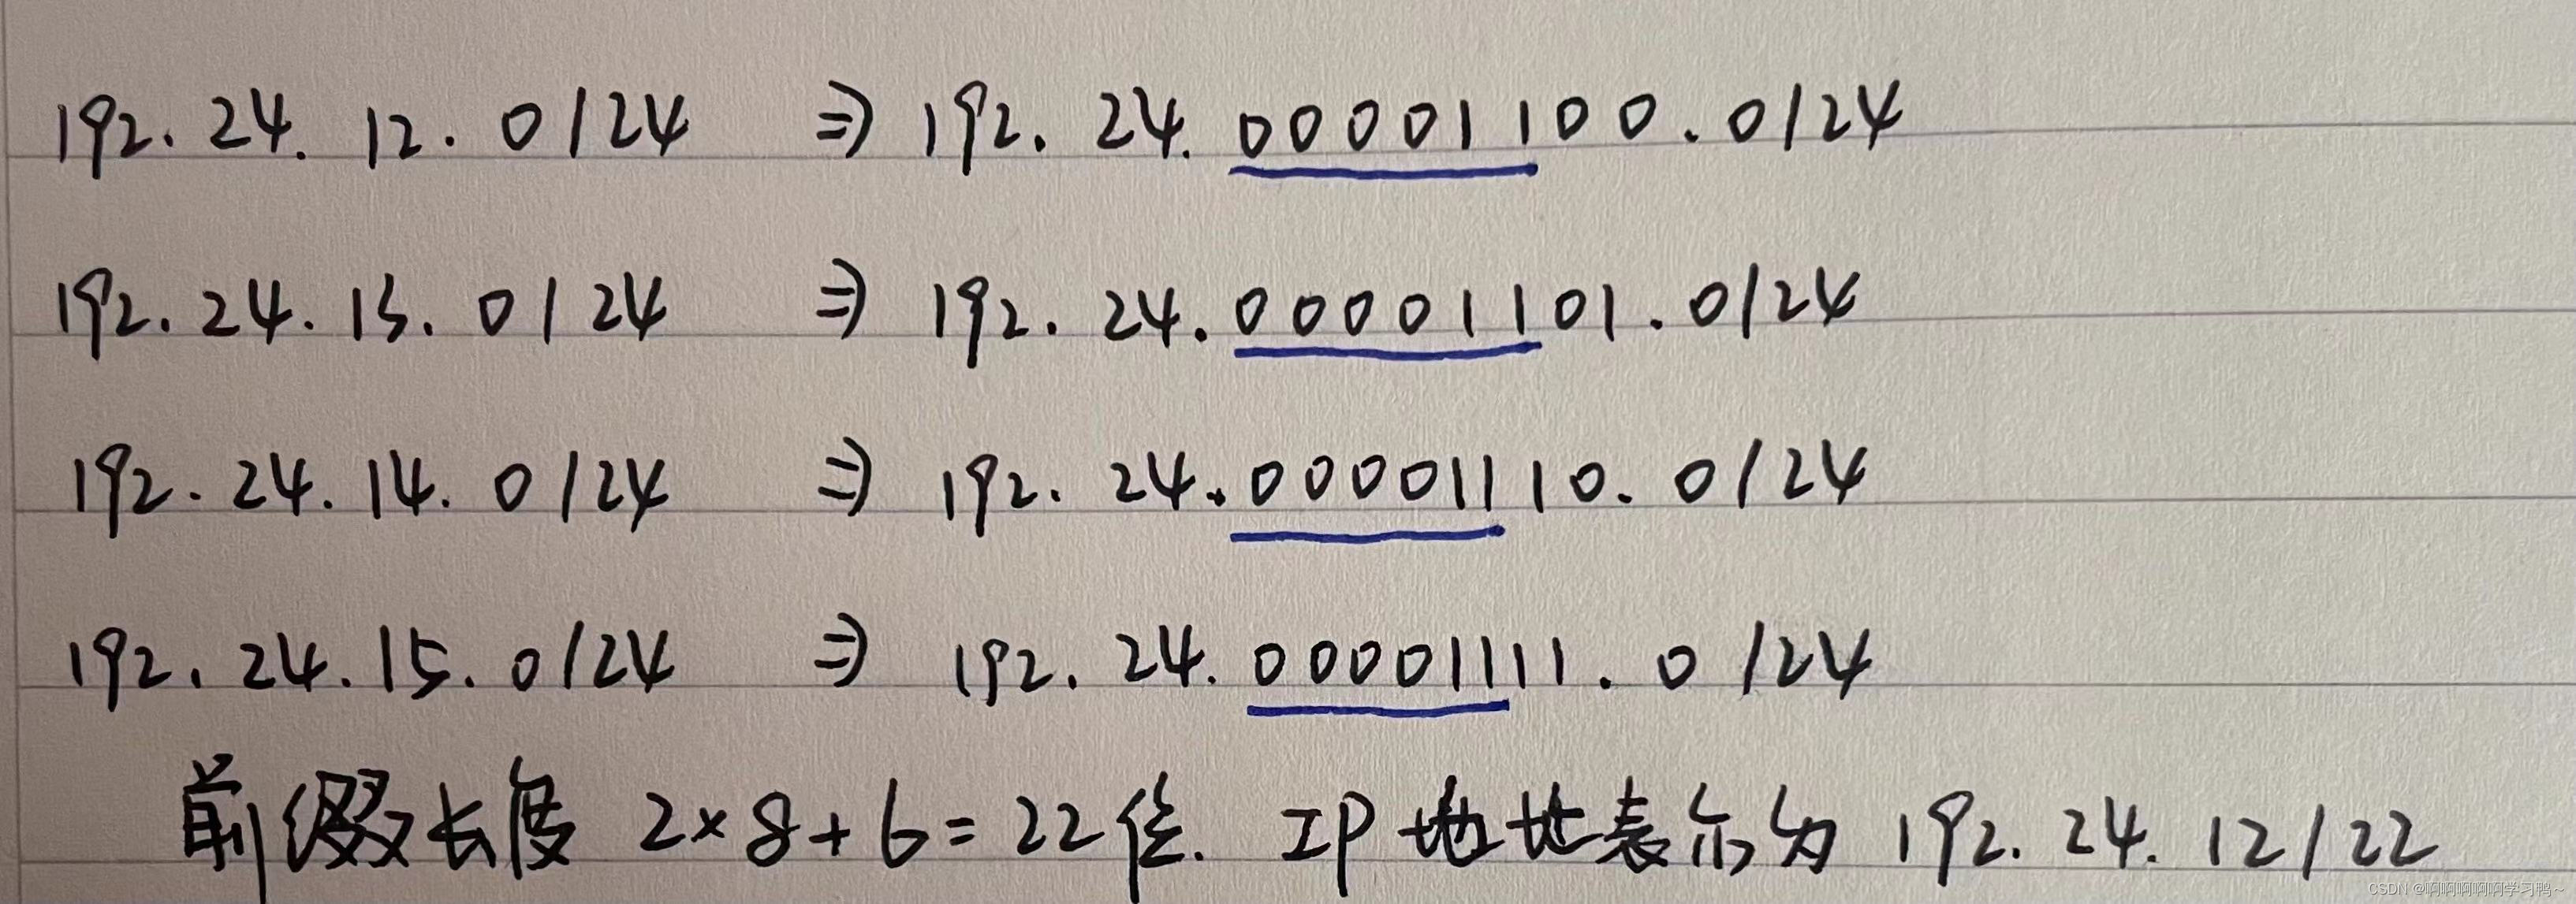 192.24.12.0/24 ⇒ 192.24.00001100.0/24
192.24.13.0/24 ⇒ 192.24.00001101.0/24
192.24.14.0/24 ⇒ 192.24.00001110.0/24
192.24.15.0/24 ⇒ 192.24.00001111.0/24
前缀长度 2×8+6=22位. IP地址表示为 192.24.12/22
CSDN @啊啊啊啊啊学习鸭~